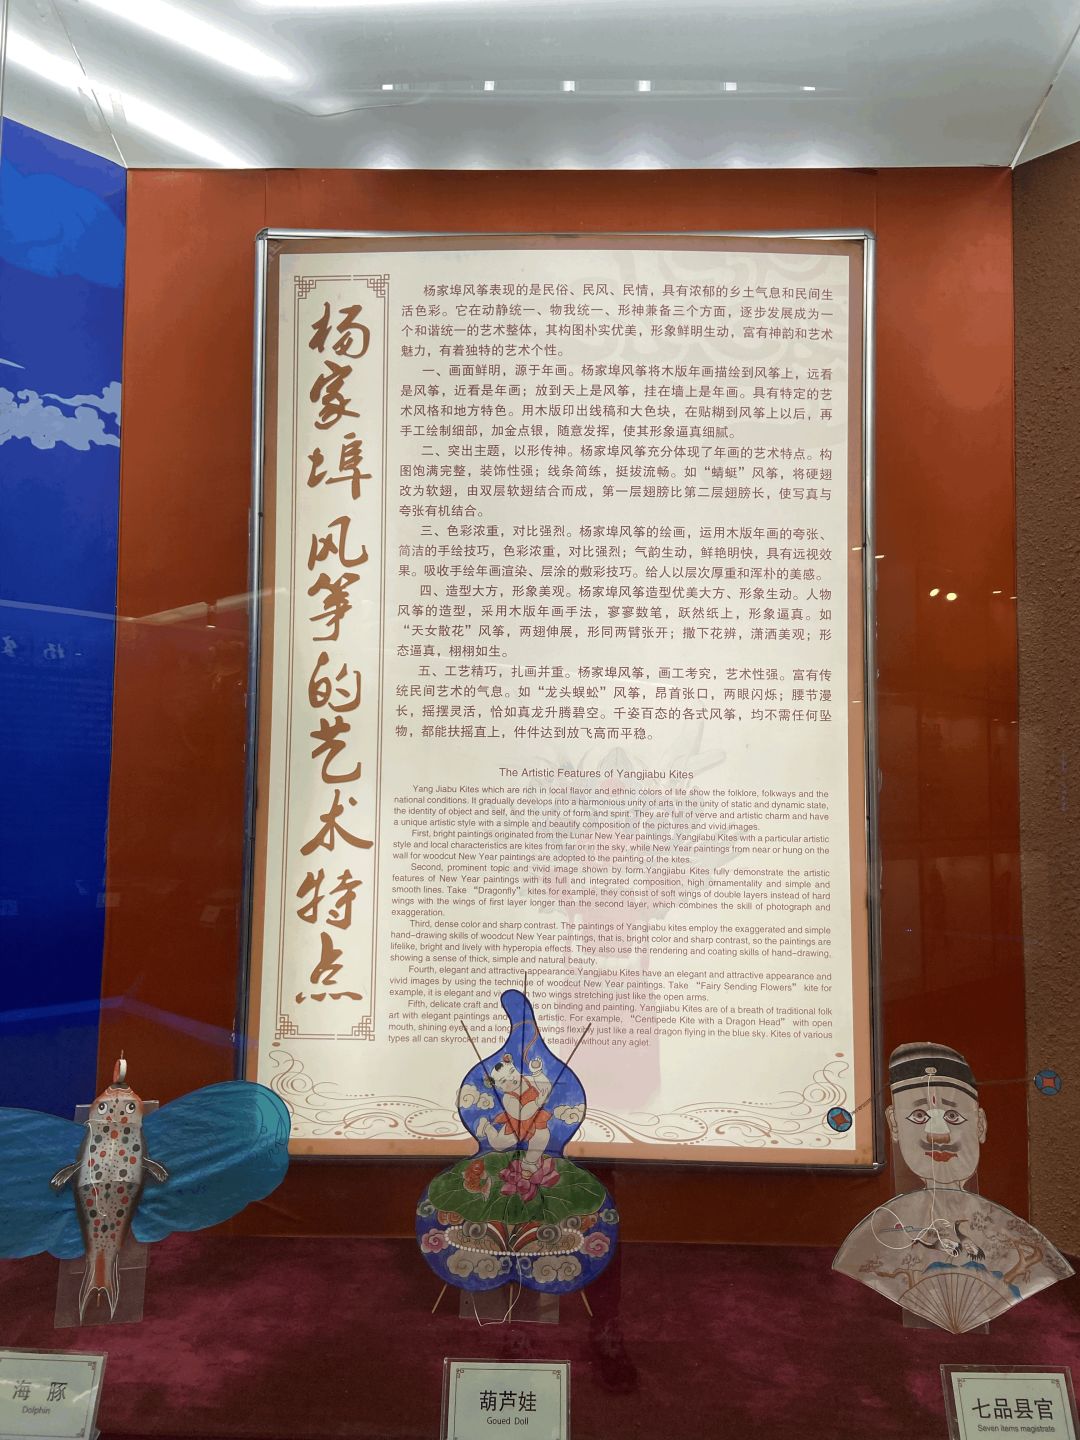 杨家埠风筝的艺术特点
杨家埠风筝表现的是民俗、民风、民情，具有浓郁的乡土气息和民间生
活色彩。它在动静统一、物我统一、形神兼备三个方面，逐步发展成为一
个和谐统一的艺术整体，其构图朴实优美，形象鲜明生动，富有神韵和艺术
魅力，有着独特的艺术个性。
一、画面鲜明，源于年画。杨家埠风筝将木版年画描绘到风筝上，远看
是风筝，近看是年画；放到天上是风筝，挂在墙上是年画。具有特定的艺
术风格和地方特色。用木版印出线稿和大色块，在贴糊到风筝上以后，再
手工绘制细部，加金点银，随意发挥，使其形象逼真细腻。
二、突出主题，以形传神。杨家埠风筝充分体现了年画的艺术特点。构
图饱满完整，装饰性强；线条简练，挺拔流畅。如“蜻蜓”风筝，将硬翅
改为软翅，由双层软翅结合而成，第一层翅膀比第二层翅膀长，使写真与
夸张有机结合。
三、色彩浓重，对比强烈。杨家埠风筝的绘画，运用木版年画的夸张、
简洁的手绘技巧，色彩浓重，对比强烈；气韵生动，鲜艳明快，具有远视效
果。吸收手绘年画渲染、层涂的敷彩技巧。给人以层次厚重和浑朴的美感。
四、造型大方，形象美观。杨家埠风筝造型优美大方、形象生动。人物
风筝的造型，采用木版年画手法，寥寥数笔，跃然纸上，形象逼真。如
“天女散花”风筝，两翅伸展，形同两臂张开；撒下花辨，潇洒美观；形
态逼真，栩栩如生。
五、工艺精巧，扎画并重。杨家埠风筝，画工考究，艺术性强。富有传
统民间艺术的气息。如“龙头蜈蚣”风筝，昂首张口，两眼闪烁；腰节漫
长，摇摆灵活，恰如真龙升腾碧空。千姿百态的各式风筝，均不需任何坠
物，都能扶摇直上，件件达到放飞高而平稳。
The Artistic Features of Yangjiabu Kites
Yang Jiabu Kites which are rich in local flavor and ethnic colors of life show the folklore, folkways and the
national conditions. It gradually develops into a harmonious unity of arts in the unity of static and dynamic state,
the identity of object and self, and the unity of form and spirit. They are full of verve and artistic charm and have
a unique artistic style with a simple and beautify composition of the pictures and vivid images.
First, bright paintings originated from the Lunar New Year paintings. Yangjiabu Kites with a particular artistic
style and local characteristics are kites from far or in the sky, while New Year paintings from near or hung on the
wall for woodcut New Year paintings are adopted to the painting of the kites.
Second, prominent topic and vivid image shown by form.Yangjiabu Kites fully demonstrate the artistic
features of New Year paintings with its full and integrated composition, high ornamentality and simple and
smooth lines. Take “Dragonfly” kites for example, they consist of soft wings of double layers instead of hard
wings with the wings of first layer longer than the second layer, which combines the skill of photograph and
exaggeration.
Third, dense color and sharp contrast. The paintings of Yangjiabu kites employ the exaggerated and simple
hand-drawing skills of woodcut New Year paintings, that is, bright color and sharp contrast, so the paintings are
lifelike, bright and lively with hyperopia effects. They also use the rendering and coating skills of hand-drawing,
showing a sense of thick, simple and natural beauty.
Fourth, elegant and attractive appearance.Yangjiabu Kites have an elegant and attractive appearance and
vivid images by using the technique of woodcut New Year paintings. Take “Fairy Sending Flowers” kite for
example, it is elegant and two wings stretching just like the open arms.
Fifth, delicate craft and on binding and painting. Yangjiabu Kites are of a breath of traditional folk
art with elegant paintings and artistic. For example, “Centipede Kite with a Dragon Head” with open
mouth, shining eyes and a long swings flexibly just like a real dragon flying in the blue sky. Kites of various
types all can skyrocket and steadily without any aglet.
海豚
Dolphin
葫芦娃
Goued Doll
七品县官
Seven items magistrate